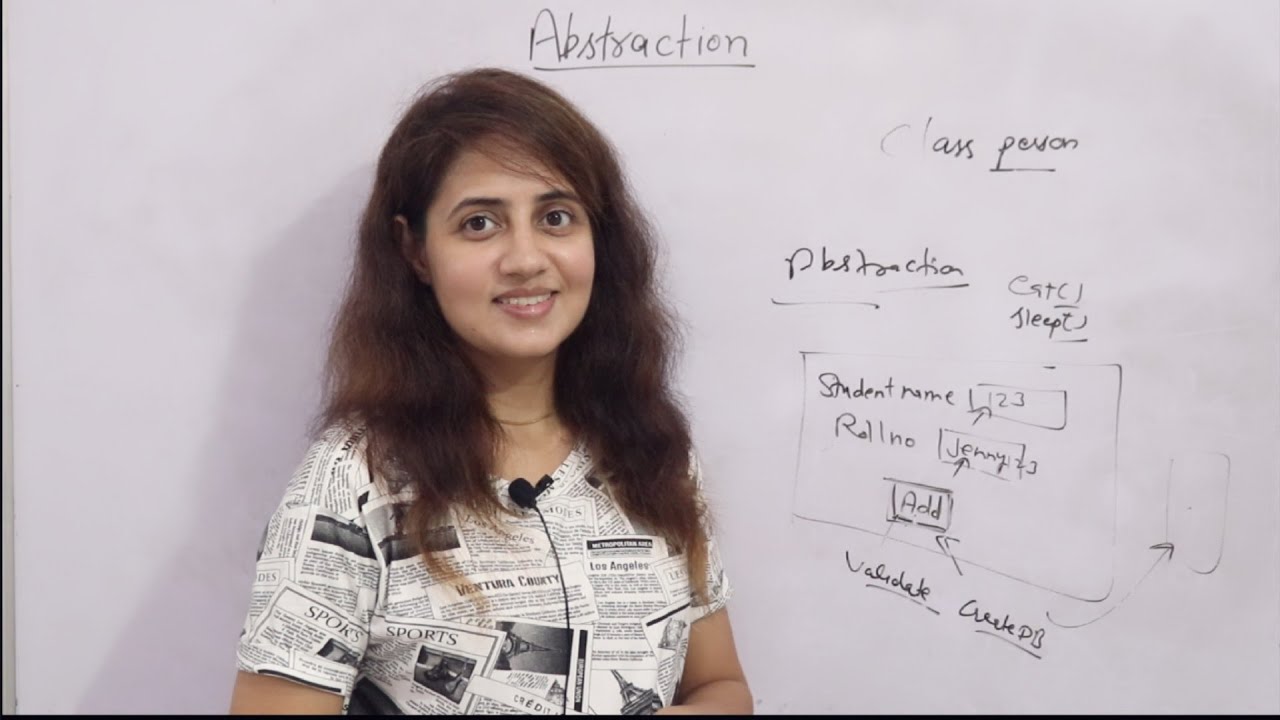 Abstraction
Class person
Abstraction
Eat()
Sleep()
Student name 123
Roll no Jenny123
Add
Validate
CreateDB
DIES
Los Angeles
METROPOLITAN AREA
Los Angeles
VENTURA COUNTY
SPORTS
SPORTS
EUROPEAN UNION
CREDIT